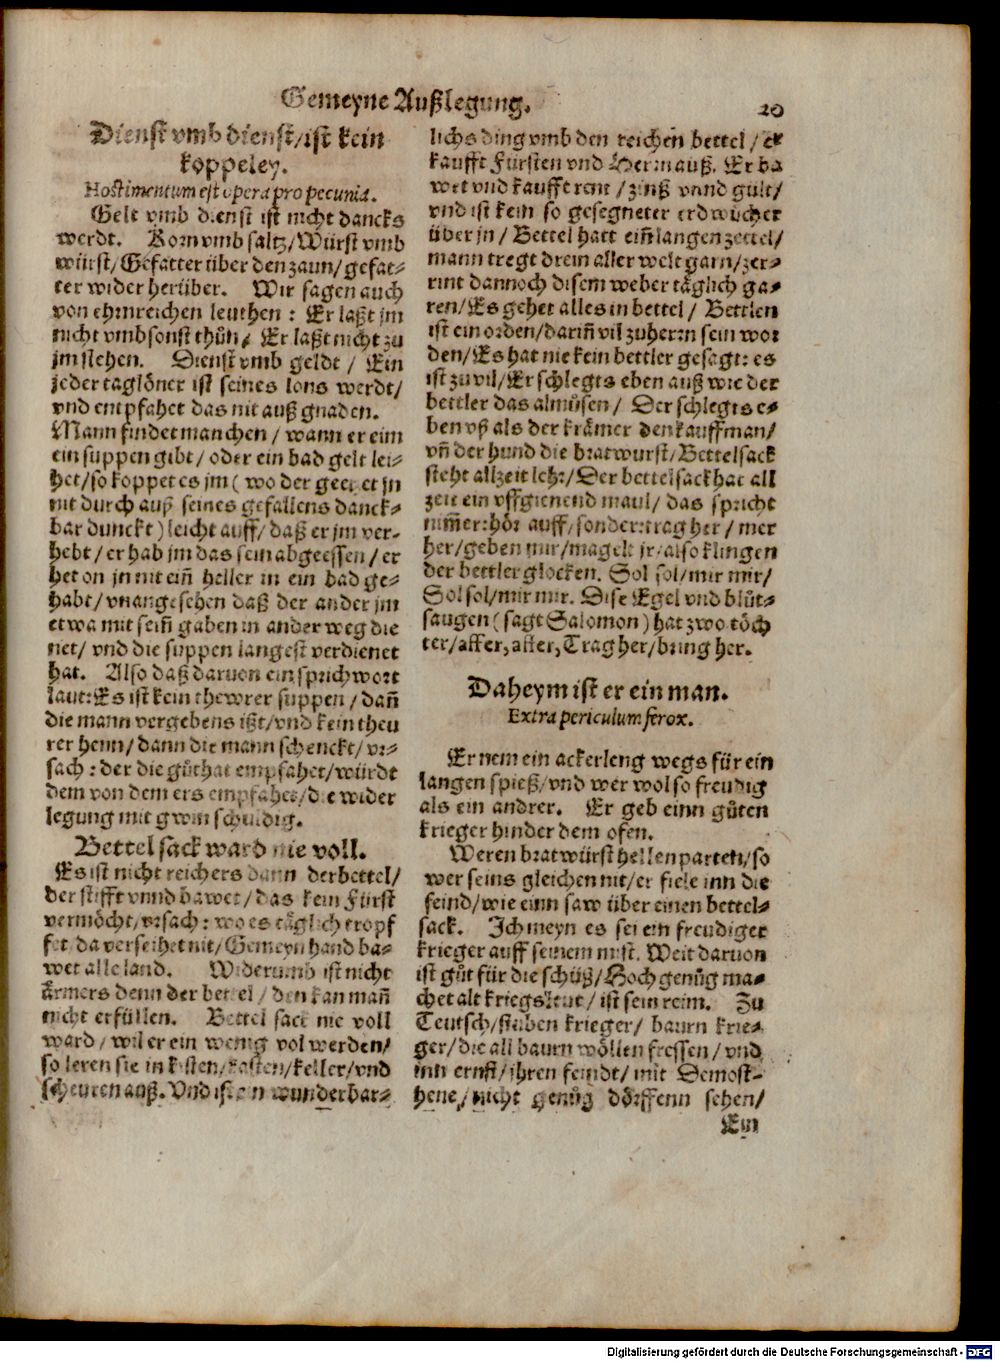 Gemeyne Außlegung.
20
Dienst vmb dienst/ist kein
koppeley.
Hostimentum est opera pro pecunia.
Gelt vmb dienst ist nicht dancks
werdt. Korn vmb saltz/Würst vmb
würst/Gefatter über den zaun/gefat⸗
ter wider herüber. Wir sagen auch
von ehrnreichen leuthen: Er laßt jm
nicht vmbsonst thůn/ Er laßt nicht zu
jm flehen. Dienst vmb geldt / Ein
jeder taglöner ist seines lons werdt/
vnd entpfahet das nit auß gnaden.
Mann findet manchen / wann er eim
ein suppen gibt / oder ein bad gelt lei⸗
het/so koppet es jm ( wo der geeret jn
nit durch auß seines gefallens danck⸗
bar dunckt ) leicht auff/ daß er jm ver⸗
hebt/ er hab jm das sein abgeessen / er
het on jn nit ein̄ heller in ein bad ge⸗
habt/ vnangesehen daß der ander jm
etwa mit sein̄ gaben in ander weg die
net/ vnd die suppen langest verdienet
hat. Also daß daruon ein sprichwort
laut: Es ist kein thewrer suppen / dan̄
die mann vergebens ißt/vnd kein theu
rer henn/ dann die mann schenckt/ vr⸗
sach : der die gůthat empfahet/würdt
dem von dem ers empfahet/die wider
legung mit gwin schuldig.
Bettelsack ward nie voll.
Es ist nicht reichers dann der bettel/
der stifft vnnd bawet / das kein Fürst
vermöcht/vrsach: wo es täglich tropf
fet da verseihet nit/ Gemeyn hand ba⸗
wet alle land. Widerumb ist nicht
ärmers denn der bettel / den kan man̄
nicht erfüllen. Bettel sack nie voll
ward / wil er ein wenig vol werden/
so leren sie in kisten/kasten/keller/vnd
scheuren auß. Vnd ist ein wunderbar⸗
lichs ding vmb den reichen bettel / er
kaufft Fürsten vnd Herrn auß. Er ba
wet vnd kaufft rent / zinß vnnd gült/
vnd ist kein so gesegneter erdwůcher
über jn / Bettel hatt ein̄ langen zettel/
mann tregt drein aller welt garn/zer⸗
rint dannoch disem weber täglich ga⸗
ren/ Es gehet alles in bettel / Bettlen
ist ein orden/darin̄ vil zuherrn sein wor
den/ Es hat nie kein bettler gesagt: es
ist zuvil/Er schlegts eben auß wie der
bettler das almůsen / Der schlegts e⸗
ben vß als der krämer den kauffman/
vn̄ der hund die bratwurst/Bettelsack
steht allzeit lehr/Der bettelsack hat all
zeit ein vffgienend maul/ das spricht
nim̄er: hör auff/sonder: trag her / mer
her/geben mir/magelt jr/also klingen
der bettler glocken. Sol sol/mir mir/
Sol sol/mir mir. Dise Egel vnd blůt⸗
saugen ( sagt Salomon ) hat zwo töch
ter/affer, affer, Trag her/bring her.
Daheym ist er ein man.
Extra periculum ferox.
Er nem ein ackerleng wegs für ein
langen spieß/vnd wer wol so freudig
als ein andrer. Er geb einn gůten
krieger hinder dem ofen.
Weren bratwürst hellenparten/so
wer seins gleichen nit/er fiele inn die
feind/wie einn saw über einen bettel⸗
sack. Ich meyn es sei ein freudiger
krieger auff seinem mist. Weit daruon
ist gůt für die schüß/Hoch genůg ma⸗
chet alt kriegsleut / ist sein reim. Zu
Teutsch/stuben krieger/ baurn krie⸗
ger/die all baurn wöllen fressen / vnd
inn ernst/ihren feindt/ mit Demost⸗
hene/nicht genůg dörffenn sehen/
Ein
Digitalisierung gefördert durch die Deutsche Forschungsgemeinschaft - DFG